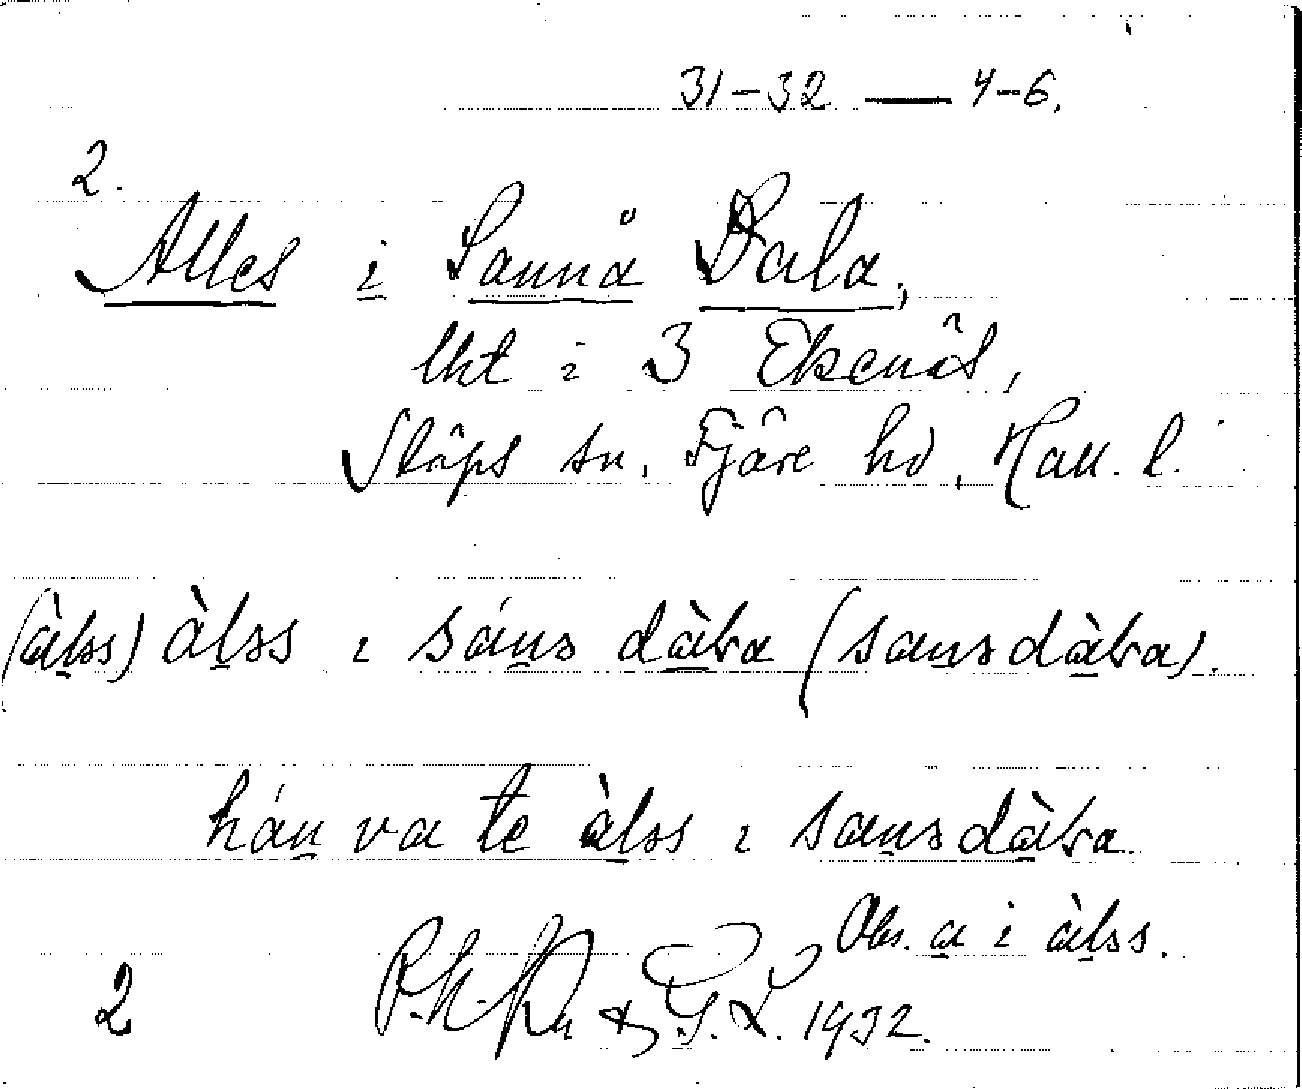 31-32 — 4-6.
2.
Alles i Sannå Dala,
lht i 3 Ekenäs,
Släps sn. Fjäre hd, Hall. l.
(àlss) àlss i sáns dàla (sansdàla).
hán va te àlss i sansdàla.
Obs. a i àlss.
2 P.N. & G.L. 1932.